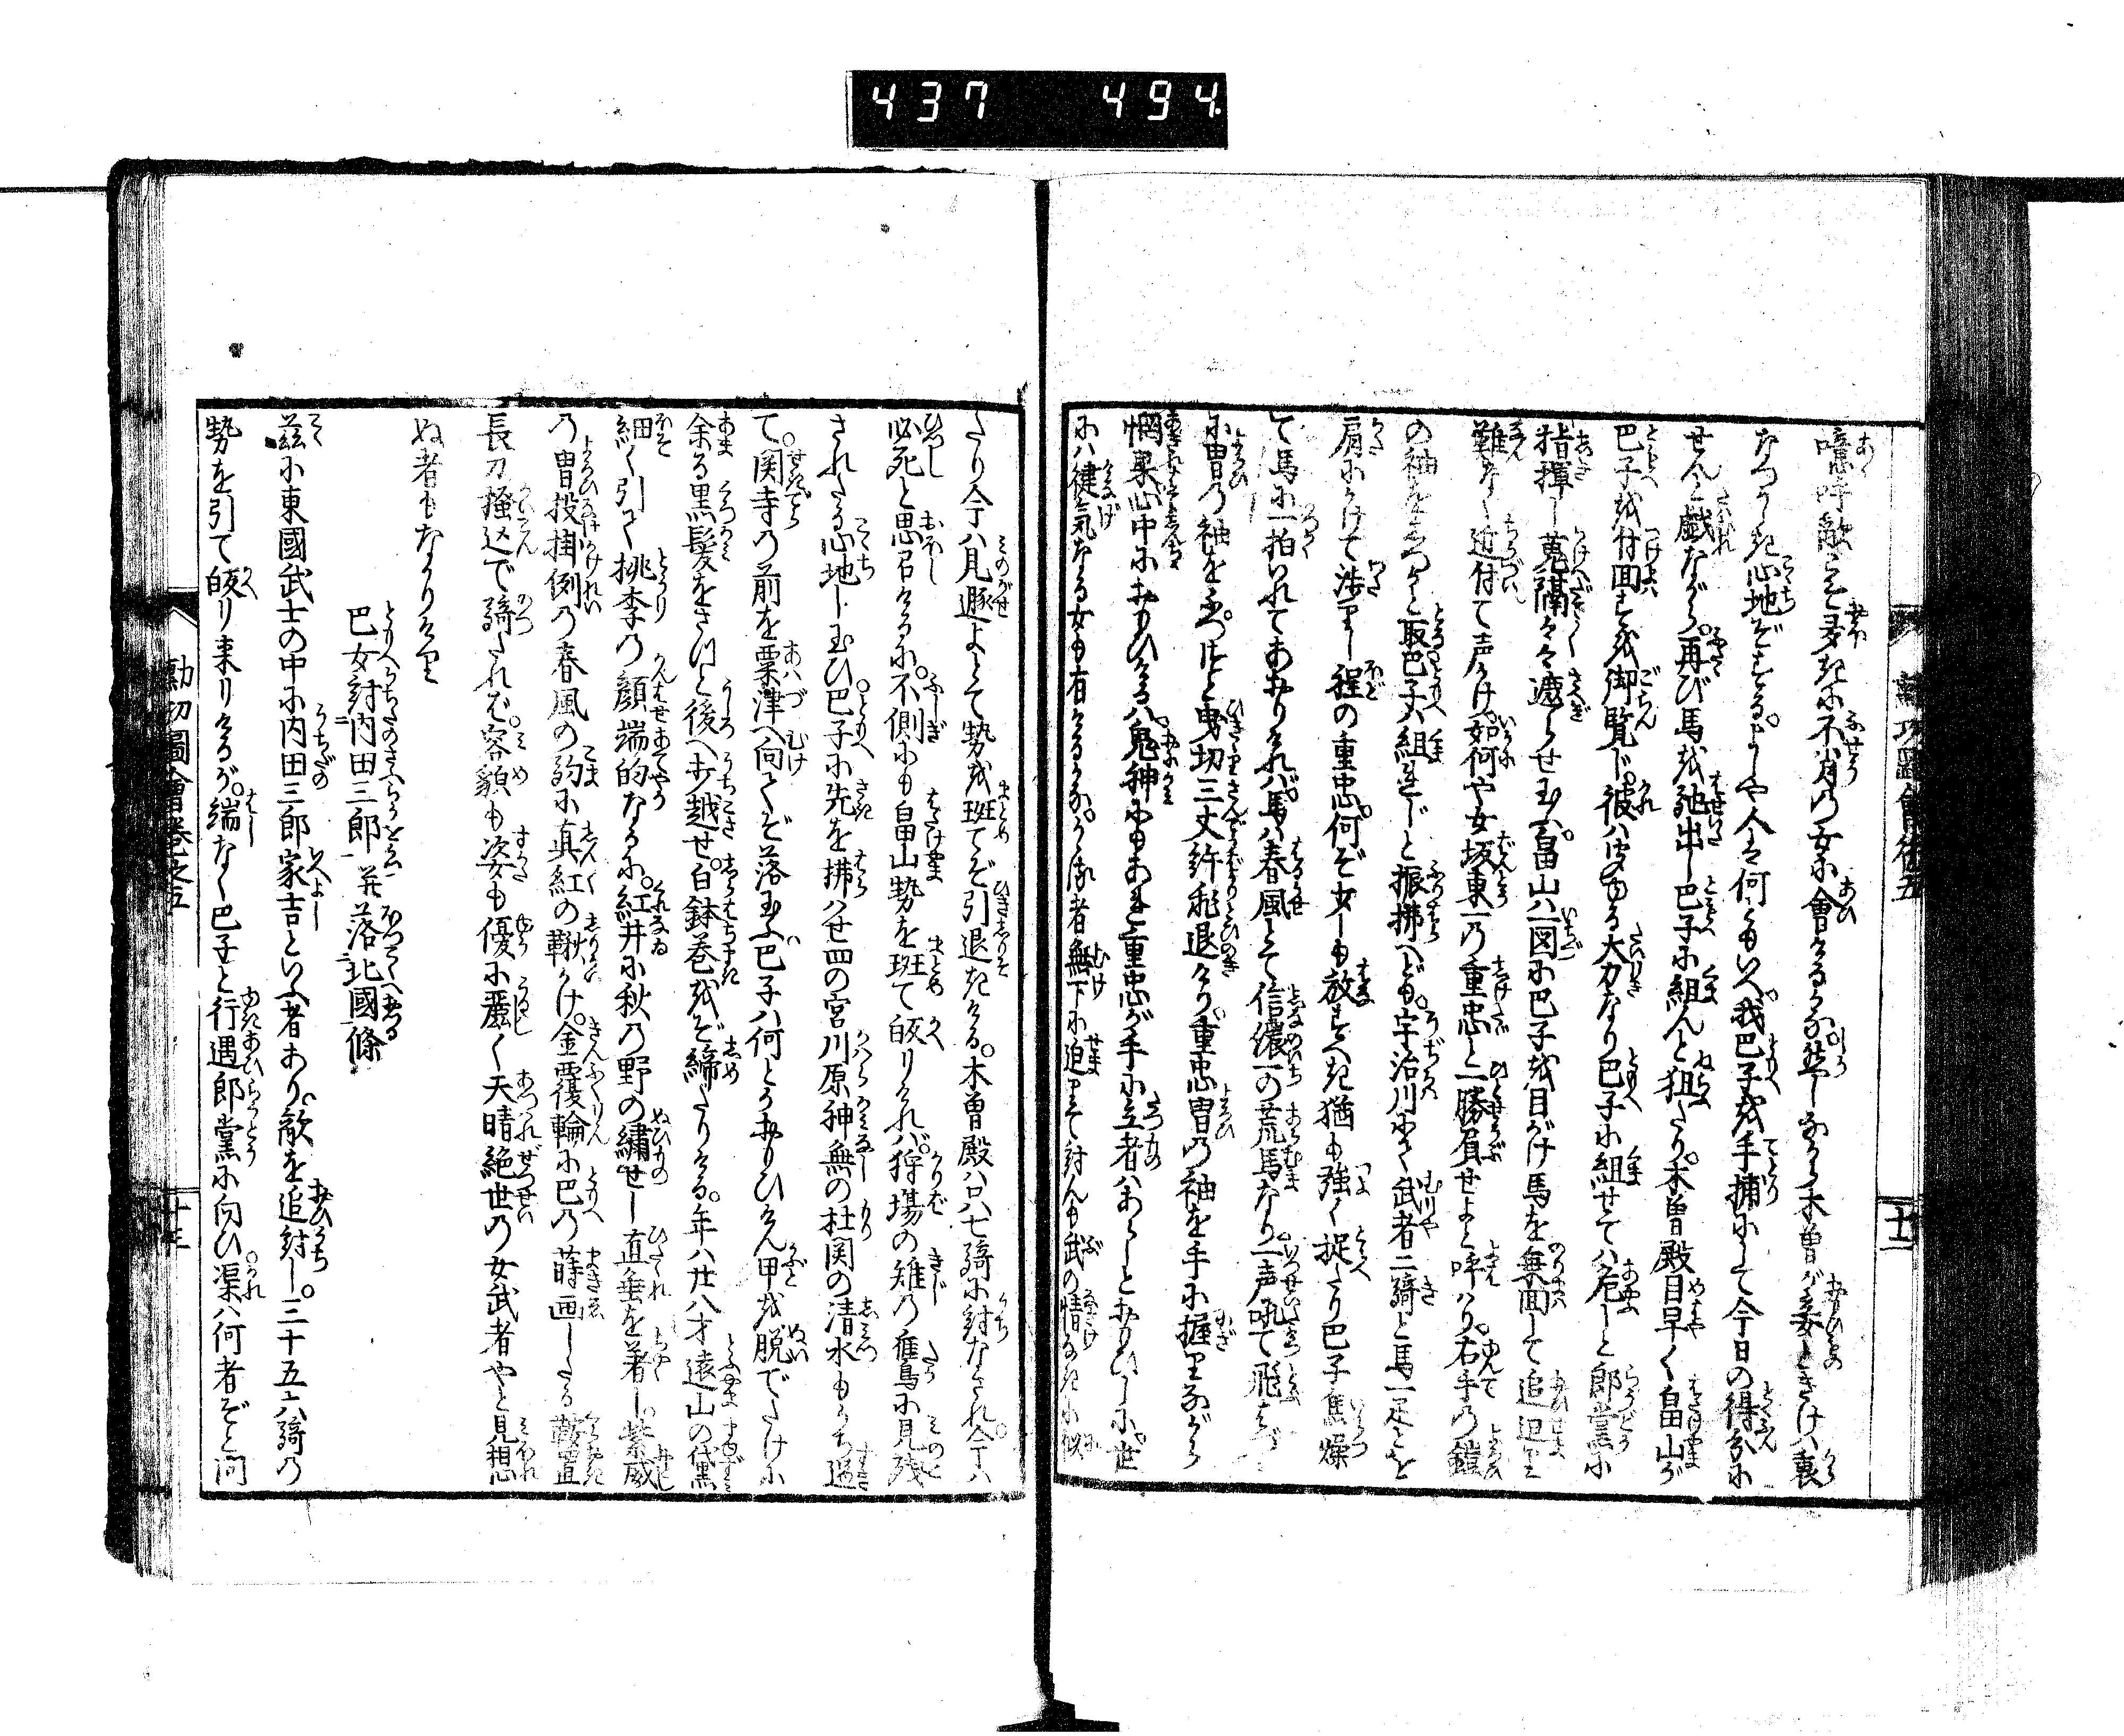 437 494
嗚呼敵もこそ多きに不肖の女に會けるかな然しながら木曽が妾ときけば裏
なつかしき心地ぞする。よしや人は何ともいへ。我巴子を手捕にして今日の得分に
せんと戯ながら。再び馬を馳出し巴子に組んと狙たり。木曽殿目早く畠山が
巴子を付回すを御覧じ。彼は大力なり巴子に組せては危しと郎党に
指揮し蒐隔々々遮らせ玉ふ。畠山は一図に巴子を目がけ馬を乗回して追廻り
難なく近付て声かけ。如何や女坂東一の重忠と一勝負せよと呼はり。右手の鎧
の袖をむづと取巴子は組まじと振払へども。宇治川にて武者二騎と馬一疋とを
肩にかけて渉りし程の重忠。何ぞ少しも放すべき猶も強く捉たり巴子焦燥
て馬に一拍いれてあおりければ。馬は春風とて信濃一の荒馬なり一声吼て飛
に冑の袖をふつと曳切三丈許飛退けり。重忠冑の袖を手に握りながら
惘果心中におもひけるは。鬼神にもあれ重忠が手に立者はあらじとおもひしに。世
には健気なる女も有けるかな。かかる者無下に迫りて討んも武の情なきに似
たり今は見遁よとて勢を班てぞ引退きける。木曽殿は只七騎に討なされ今は
必死と思召けるに。不側にも畠山勢を班て皈りければ。狩場の雉の鷹に見残
されたる心地し玉ひ巴子に先を拂はせ四の宮川原神無の杜関の清水もうち過
て。関寺の前を粟津へ向てぞ落玉ふ巴子は何とかおもひけん甲を脱でたけに
余る黒髪をさつと後へ打越せ。白鉢巻をぞ締たりける。年は廿八才遠山の黛
細く引て桃李の顔端的なるに。紅井に秋の野の繍せし直垂を著し紫威
の冑投掛例の春風の駒に真紅の鞦かけ。金覆輪に巴の蒔画したる鞍置
長刀掻込で騎たれば。容貌も姿も優に麗く天晴絶世の女武者やと見惚
ぬ者もなかりけり
巴女討内田三郎并落北國條
茲に東國武士の中に内田三郎家吉といふ者あり。敵を追討し。三十五六騎の
勢を引て皈り来りけるが。端なく巴子と行遇郎党に向ひ渠は何者ぞと問
勲功圖會巻之五
十三